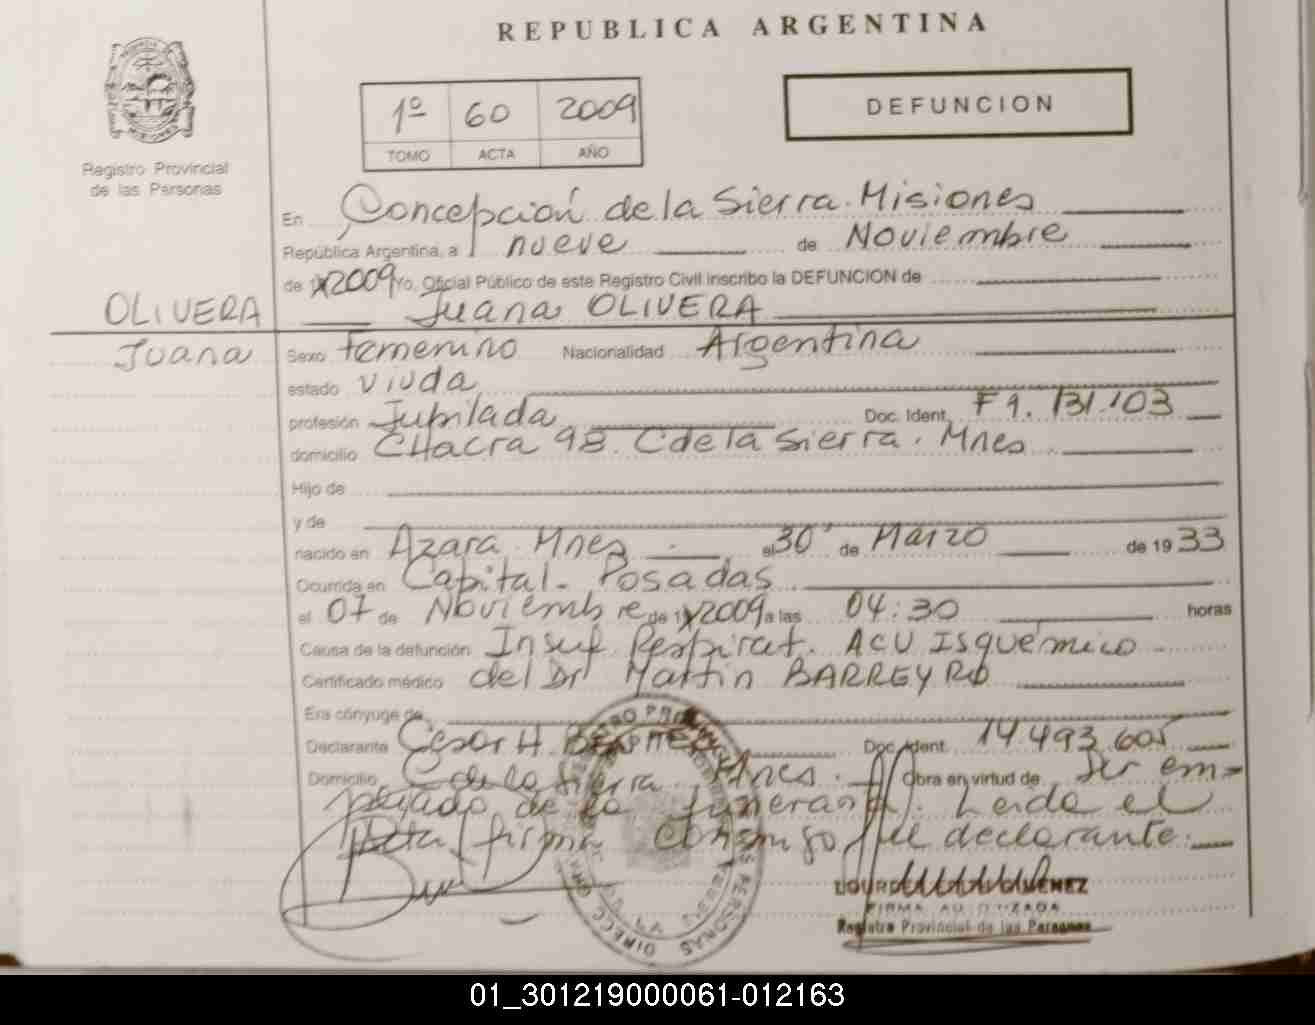 REPUBLICA ARGENTINA
1º 60 2009
TOMO ACTA AÑO
DEFUNCION
Registro Provincial
de las Personas
En Concepción de la Sierra. Misiones
República Argentina, a nueve de Noviembre
de 2009 Yo, Oficial Público de este Registro Civil inscribo la DEFUNCION de
OLIVERA Juana OLIVERA
Juana Sexo Femenino Nacionalidad Argentina
estado viuda
profesión Jubilada Doc. Ident. F1.131.103
domicilio CHacra 98. C de la Sierra. Mnes
Hijo de
y de
nacido en Azara Mnes el 30 de Marzo de 1933
Ocurrida en Capital - Posadas
el 07 de Noviembre de 2009 a las 04:30 horas
Causa de la defunción Insuf Respirat. ACV Isquémico
Certificado médico del Dr Martin BARREYRO
Era cónyuge de
Declarante Cesar H. Doc. Ident. 14.493.605
Domicilio C de la Sierra Mnes. Obra en virtud de Ser em-
pleado de la funeraria. Leida el
Acta, firma conmigo el declarante.
LOURDES GIMENEZ
FIRMA AUTORIZADA
Registro Provincial de las Personas
01_301219000061-012163